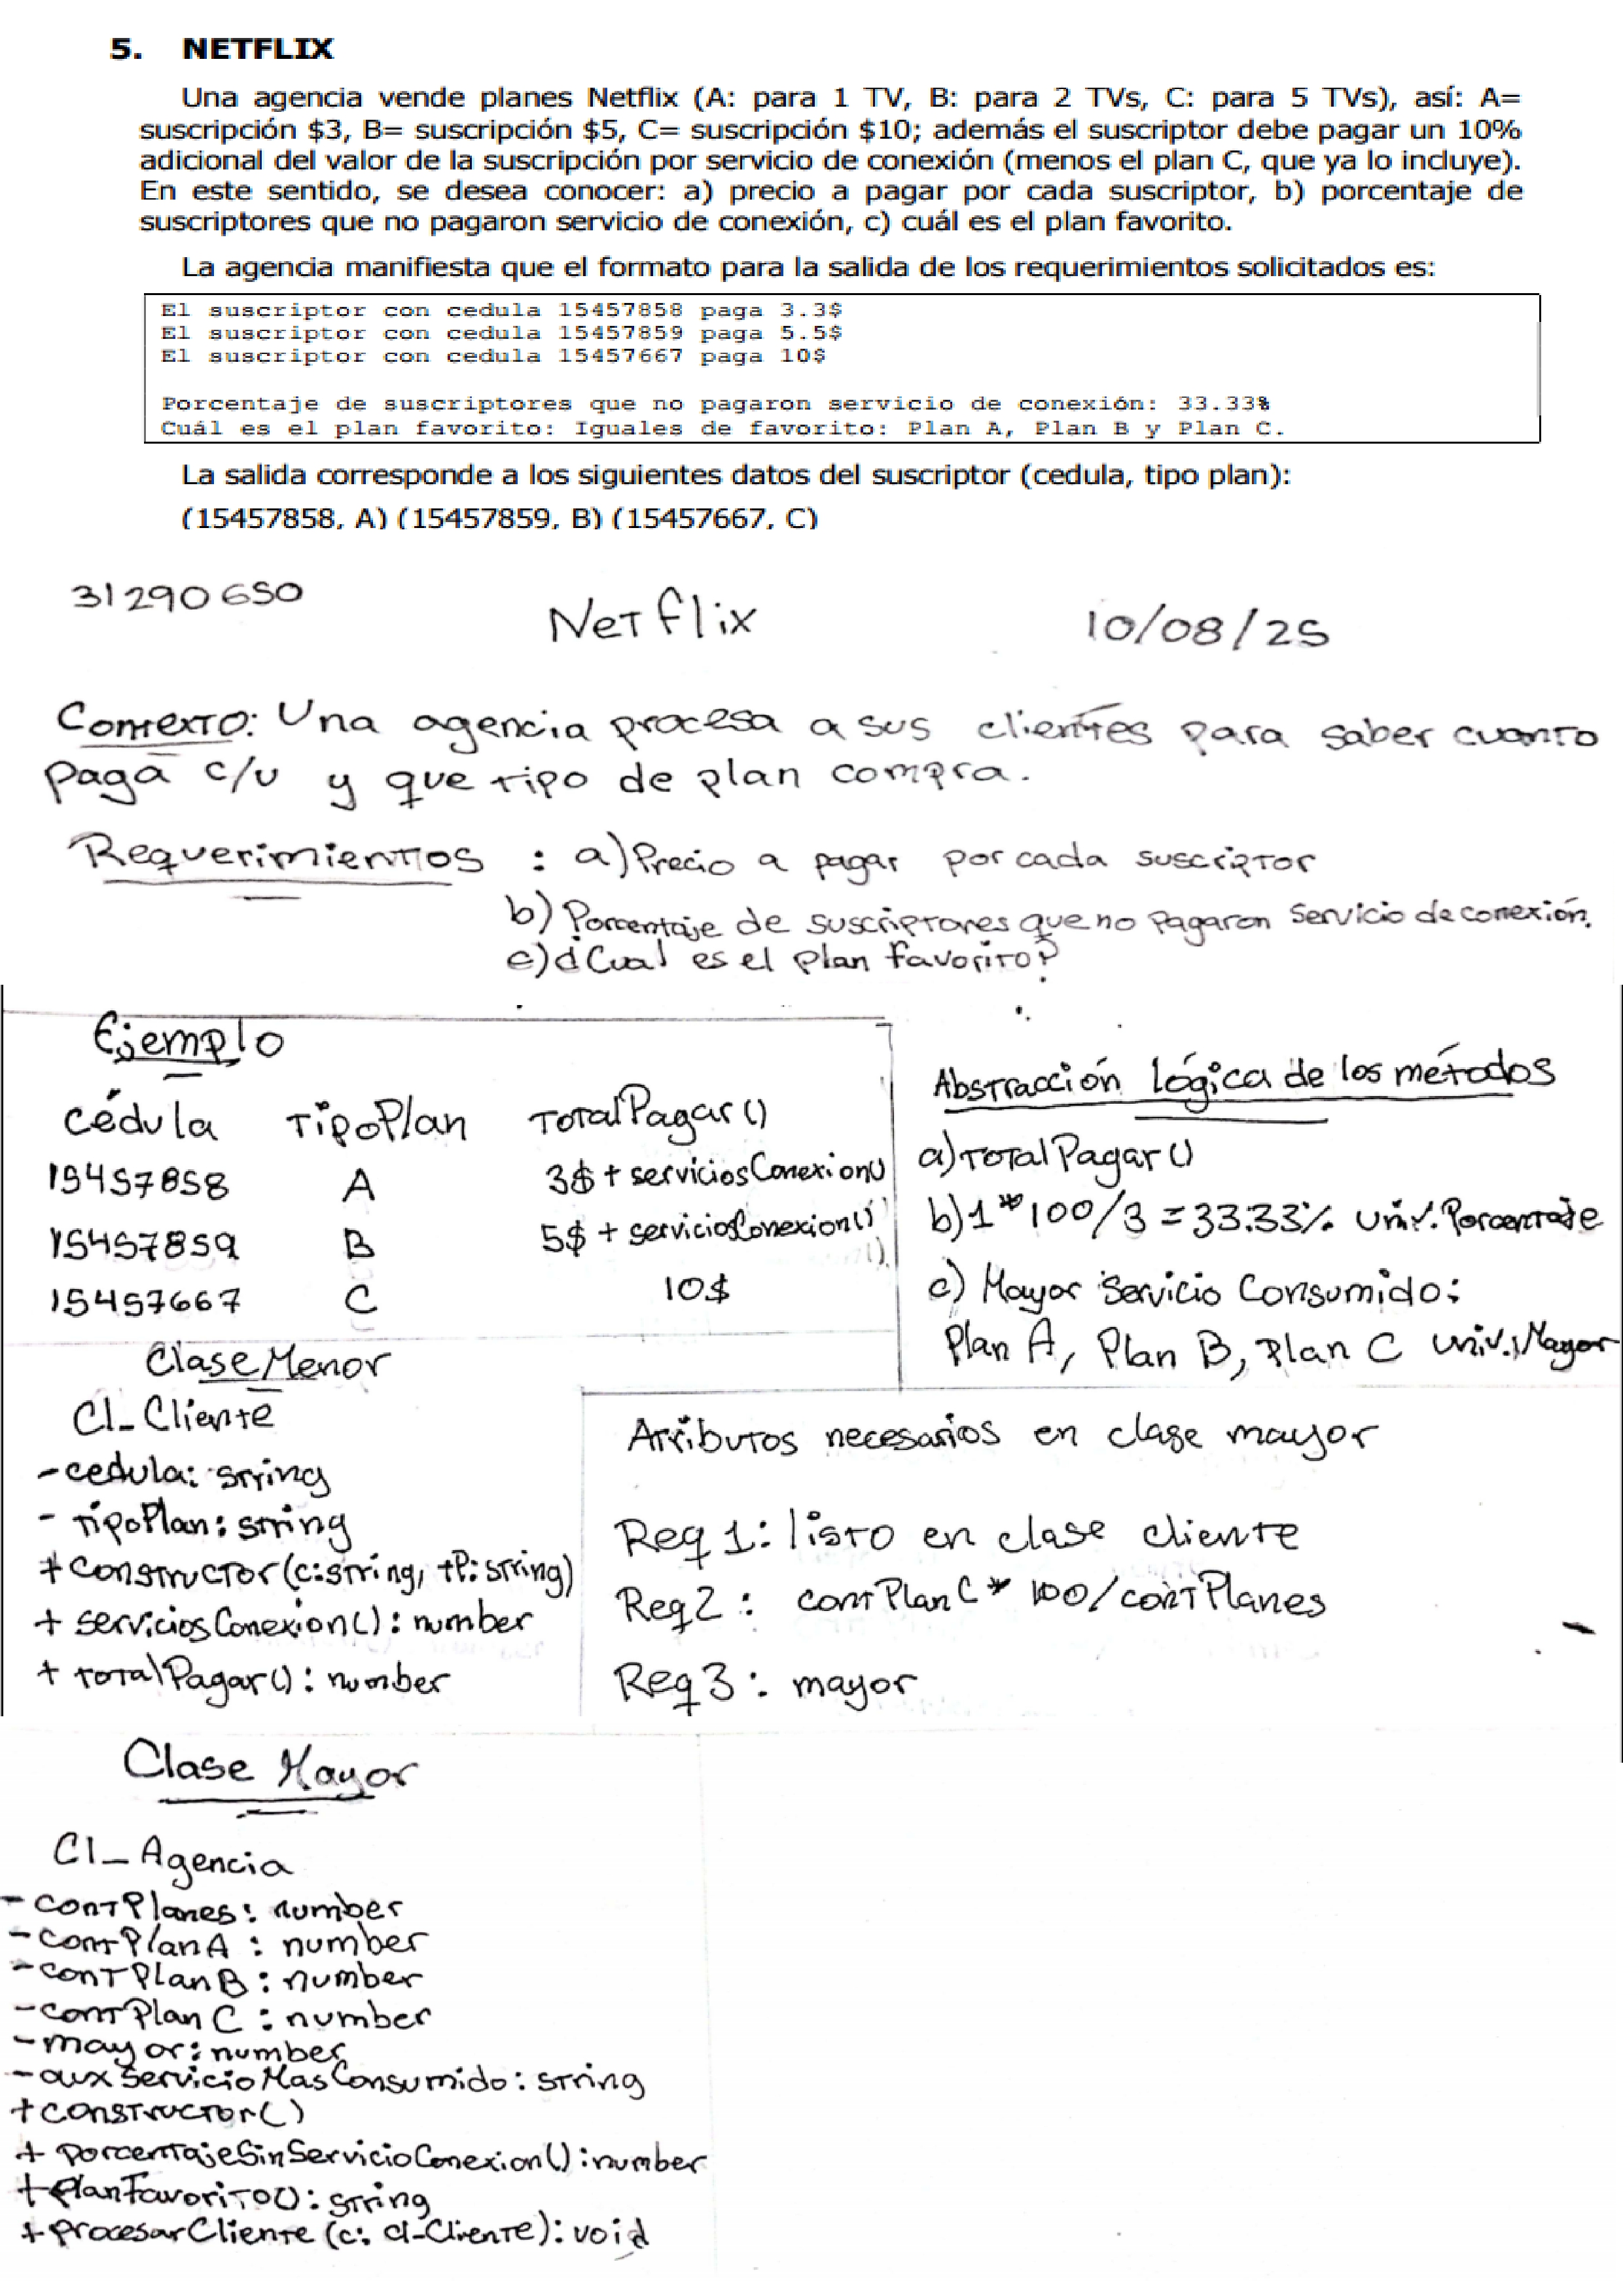 5. NETFLIX
Una agencia vende planes Netflix (A: para 1 TV, B: para 2 TVs, C: para 5 TVs), así: A=
suscripción $3, B= suscripción $5, C= suscripción $10; además el suscriptor debe pagar un 10%
adicional del valor de la suscripción por servicio de conexión (menos el plan C, que ya lo incluye).
En este sentido, se desea conocer: a) precio a pagar por cada suscriptor, b) porcentaje de
suscriptores que no pagaron servicio de conexión, c) cuál es el plan favorito.
La agencia manifiesta que el formato para la salida de los requerimientos solicitados es:
El suscriptor con cedula 15457858 paga 3.3$
El suscriptor con cedula 15457859 paga 5.5$
El suscriptor con cedula 15457667 paga 10$
Porcentaje de suscriptores que no pagaron servicio de conexión: 33.33%
Cuál es el plan favorito: Iguales de favorito: Plan A, Plan B y Plan C.
La salida corresponde a los siguientes datos del suscriptor (cedula, tipo plan):
(15457858, A) (15457859, B) (15457667, C)
31290650 Netflix 10/08/25
Contexto: Una agencia procesa a sus clientes para saber cuanto
paga c/u y que tipo de plan compra.
Requerimientos : a) Precio a pagar por cada suscriptor
b) Porcentaje de suscriptores que no pagaron servicio de conexión.
c) ¿Cual es el plan favorito?
Ejemplo
cédula TipoPlan TotalPagar()
15457858 A 3$ + serviciosConexion()
15457859 B 5$ + serviciosConexion()
15457667 C 10$
Abstracción lógica de los métodos
a) TotalPagar()
b) 1*100/3 = 33.33% univ. Porcentaje
c) Mayor Servicio Consumido:
Plan A, Plan B, Plan C univ. Mayor
Clase Menor
Cl_Cliente
- cedula: string
- tipoPlan: string
+ constructor(c:string, tP: string)
+ serviciosConexion(): number
+ totalPagar(): number
Atributos necesarios en clase mayor
Req 1: listo en clase cliente
Req 2: contPlanC * 100/contPlanes
Req 3: mayor
Clase Mayor
Cl_Agencia
- contPlanes: number
- contPlanA : number
- contPlanB : number
- contPlanC : number
- mayor: number
- auxServicioMasConsumido: string
+ constructor()
+ porcentajeSinServicioConexion(): number
+ planFavorito(): string
+ procesarCliente (c: cl-Cliente): void